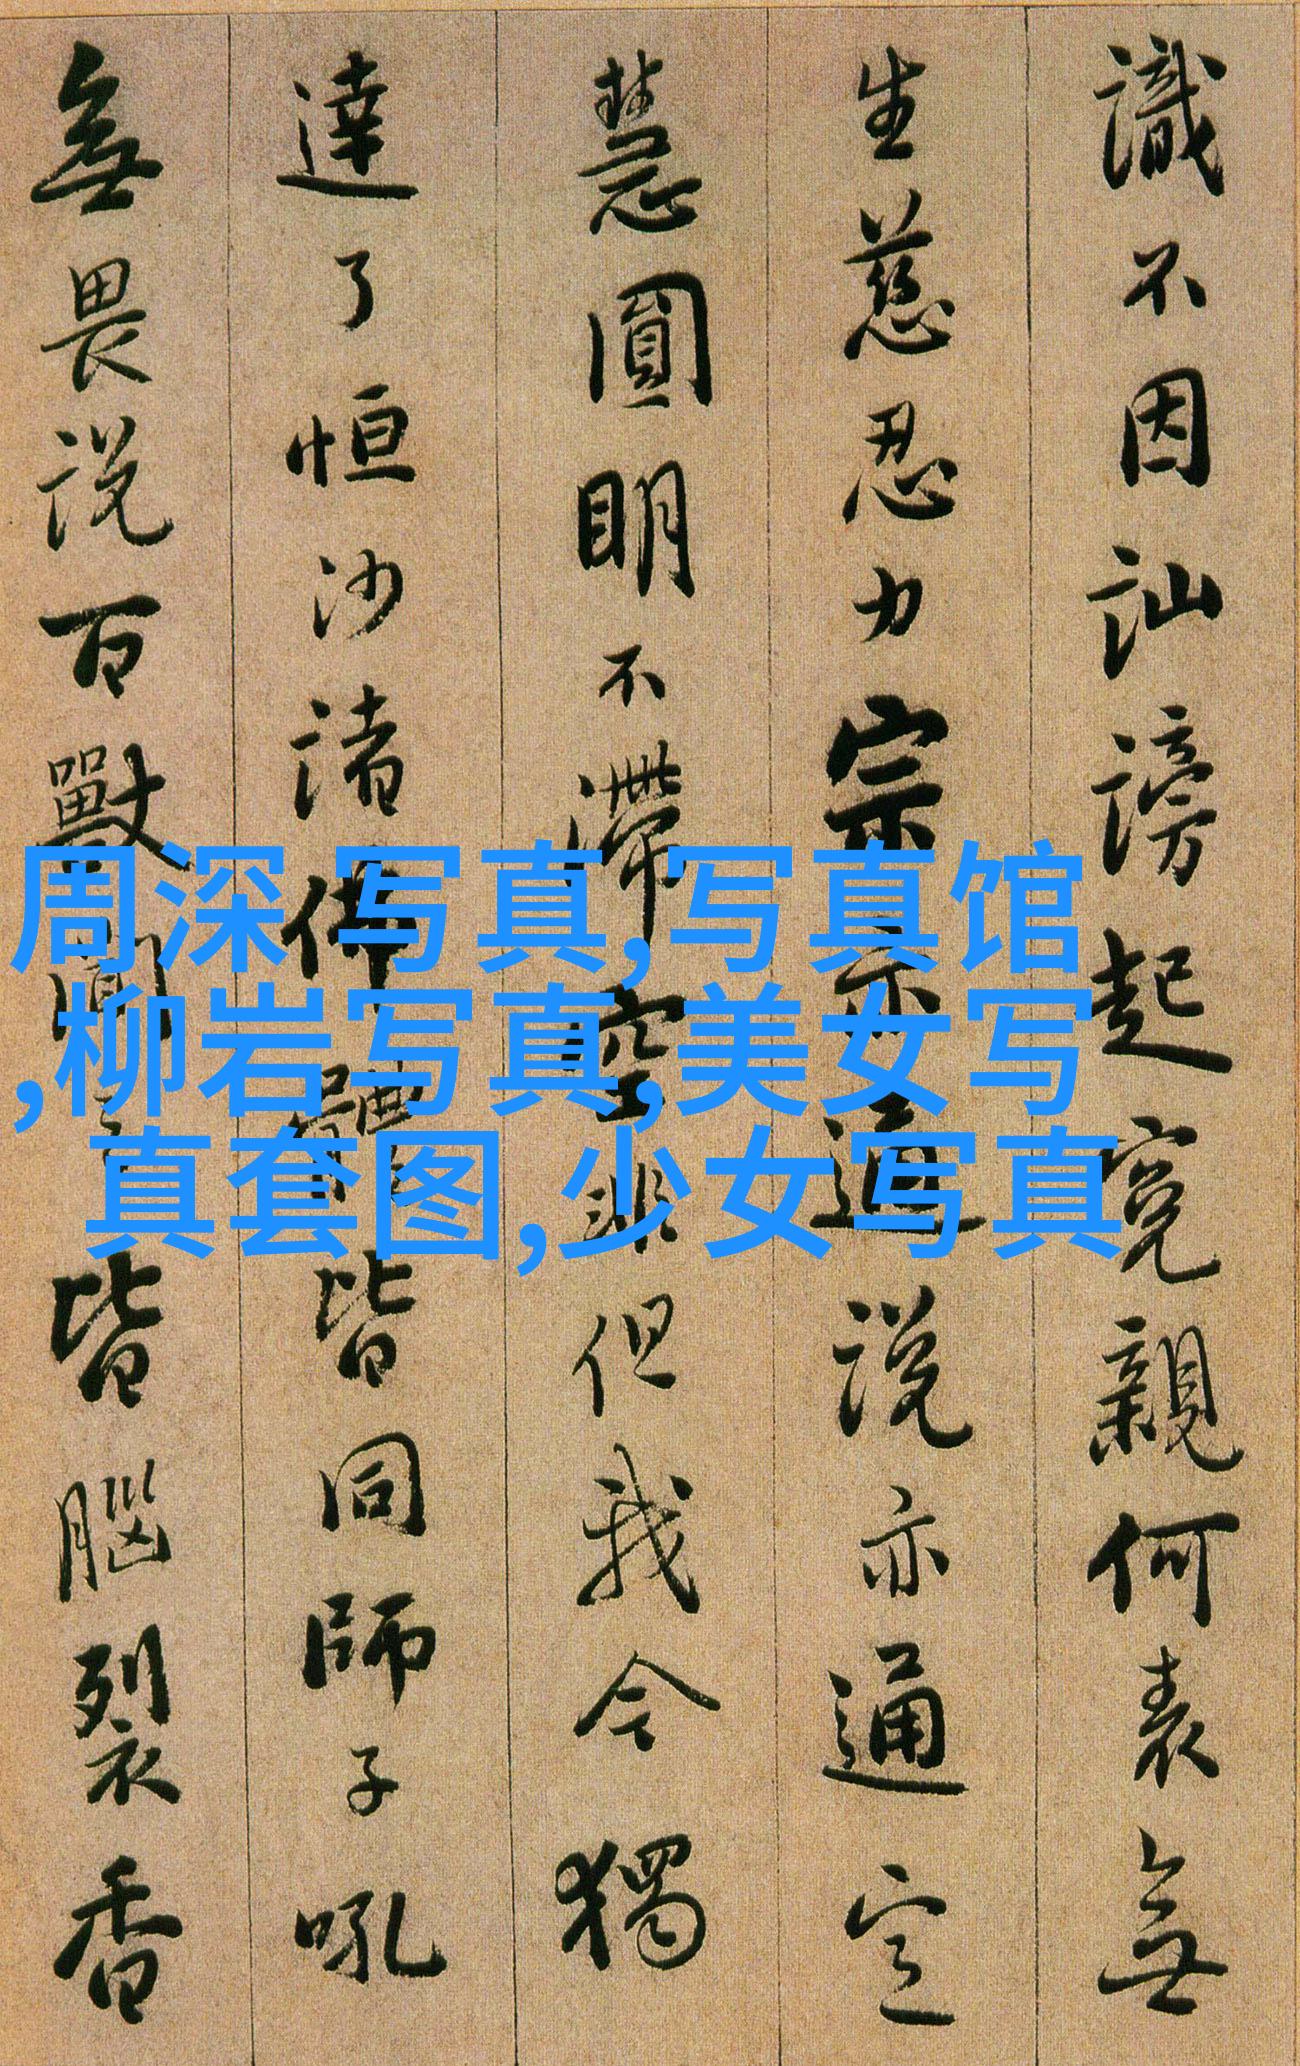 識不因訕謗起寃親何表無
生慈忍力宗亦通説亦通定
慧圓明不滯空非但我今獨
達了恒沙諸佛體皆同師子吼
無畏説百獸聞之皆腦裂香
周深 写真,写真馆
,柳岩写真,美女写
真套图,少女写真